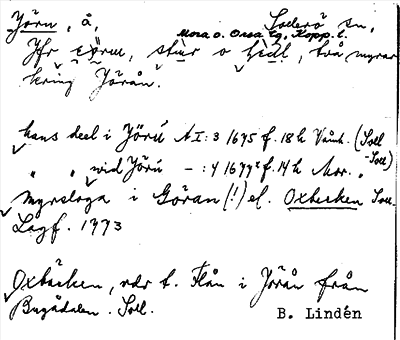 Jörn, å, Söderö sn,
Mora o. Orsa tg, Kopp. l.
Jfr cörm, stur o hedl, två myrar
kring Jörån.
hans deel i Jörú AI:3 1675 f. 18 h Våmh. (Soll
-Soll)
" " wid Jörú - :4 1677² f. 14 h Mor. "
Myrsloga i Göran (!) el. Oxbäcken Soll.
Lagf. 1773
Oxbäcken, vdr t. Flån i Jörån från
Bugådalen. Soll.
B. Lindén